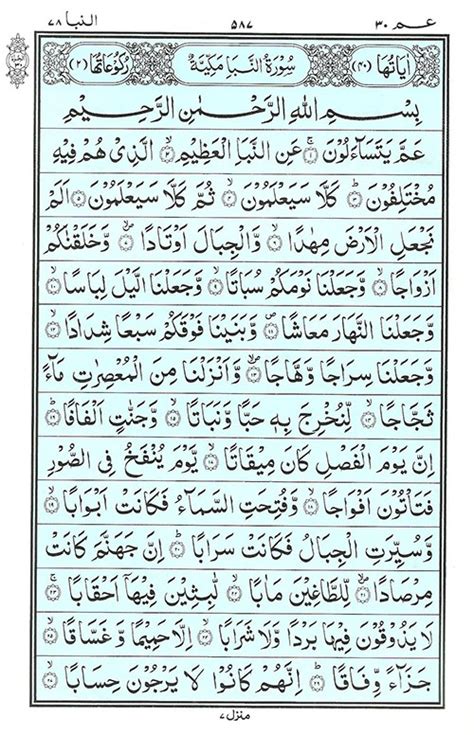 عـم ٣٠ ٥٨٧ النبا ٧٨
اٰيَاتُهَا (٤٠) سُوْرَةُ النَّبَاِ مَكِّيَّةٌ رُكُوْعَاتُهَا (٢)
بِسْمِ اللهِ الرَّحْمٰنِ الرَّحِيْمِ
عَمَّ يَتَسَآءَلُوْنَ ۚ ۝١ عَنِ النَّبَاِ الْعَظِيْمِ ۙ ۝٢ الَّذِىْ هُمْ فِيْهِ
مُخْتَلِفُوْنَ ؕ ۝٣ كَلَّا سَيَعْلَمُوْنَ ۙ ۝٤ ثُمَّ كَلَّا سَيَعْلَمُوْنَ ۝٥ اَلَمْ
نَجْعَلِ الْاَرْضَ مِهٰدًا ۙ ۝٦ وَّالْجِبَالَ اَوْتَادًا ۪ۙ ۝٧ وَّخَلَقْنٰكُمْ
اَزْوَاجًا ۙ ۝٨ وَّجَعَلْنَا نَوْمَكُمْ سُبَاتًا ۙ ۝٩ وَّجَعَلْنَا الَّيْلَ لِبَاسًا ۙ ۝١٠
وَّجَعَلْنَا النَّهَارَ مَعَاشًا ۪ ۝١١ وَّبَنَيْنَا فَوْقَكُمْ سَبْعًا شِدَادًا ۙ ۝١٢
وَّجَعَلْنَا سِرَاجًا وَّهَّاجًا ۪ۙ ۝١٣ وَّاَنْزَلْنَا مِنَ الْمُعْصِرٰتِ مَآءً
ثَجَّاجًا ۙ ۝١٤ لِّنُخْرِجَ بِهٖ حَبًّا وَّنَبَاتًا ۙ ۝١٥ وَّجَنّٰتٍ اَلْفَافًا ؕ ۝١٦
اِنَّ يَوْمَ الْفَصْلِ كَانَ مِيْقَاتًا ۙ ۝١٧ يَّوْمَ يُنْفَخُ فِى الصُّوْرِ
فَتَاْتُوْنَ اَفْوَاجًا ۙ ۝١٨ وَّفُتِحَتِ السَّمَآءُ فَكَانَتْ اَبْوَابًا ۙ ۝١٩
وَّسُيِّرَتِ الْجِبَالُ فَكَانَتْ سَرَابًا ؕ ۝٢٠ اِنَّ جَهَنَّمَ كَانَتْ
مِرْصَادًا ۪ۙ ۝٢١ لِّلطَّاغِيْنَ مَاٰبًا ۙ ۝٢٢ لّٰبِثِيْنَ فِيْهَاۤ اَحْقَابًا ۚ ۝٢٣
لَا يَذُوْقُوْنَ فِيْهَا بَرْدًا وَّلَا شَرَابًا ۙ ۝٢٤ اِلَّا حَمِيْمًا وَّغَسَّاقًا ۙ ۝٢٥
جَزَآءً وِّفَاقًا ؕ ۝٢٦ اِنَّهُمْ كَانُوْا لَا يَرْجُوْنَ حِسَابًا ۙ ۝٢٧
منزل ٧